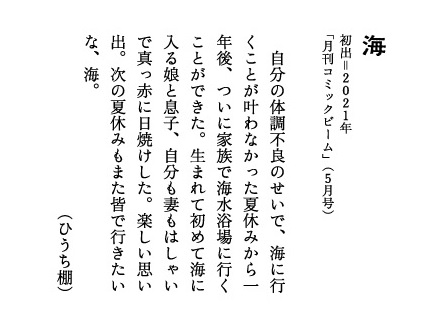 海
初出＝2021年
「月刊コミックビーム」（5月号）
自分の体調不良のせいで、海に行
くことが叶わなかった夏休みから一
年後、ついに家族で海水浴場に行く
ことができた。生まれて初めて海に
入る娘と息子、自分も妻もはしゃい
で真っ赤に日焼けした。楽しい思い
出。次の夏休みもまた皆で行きたい
な、海。
（ひうち棚）